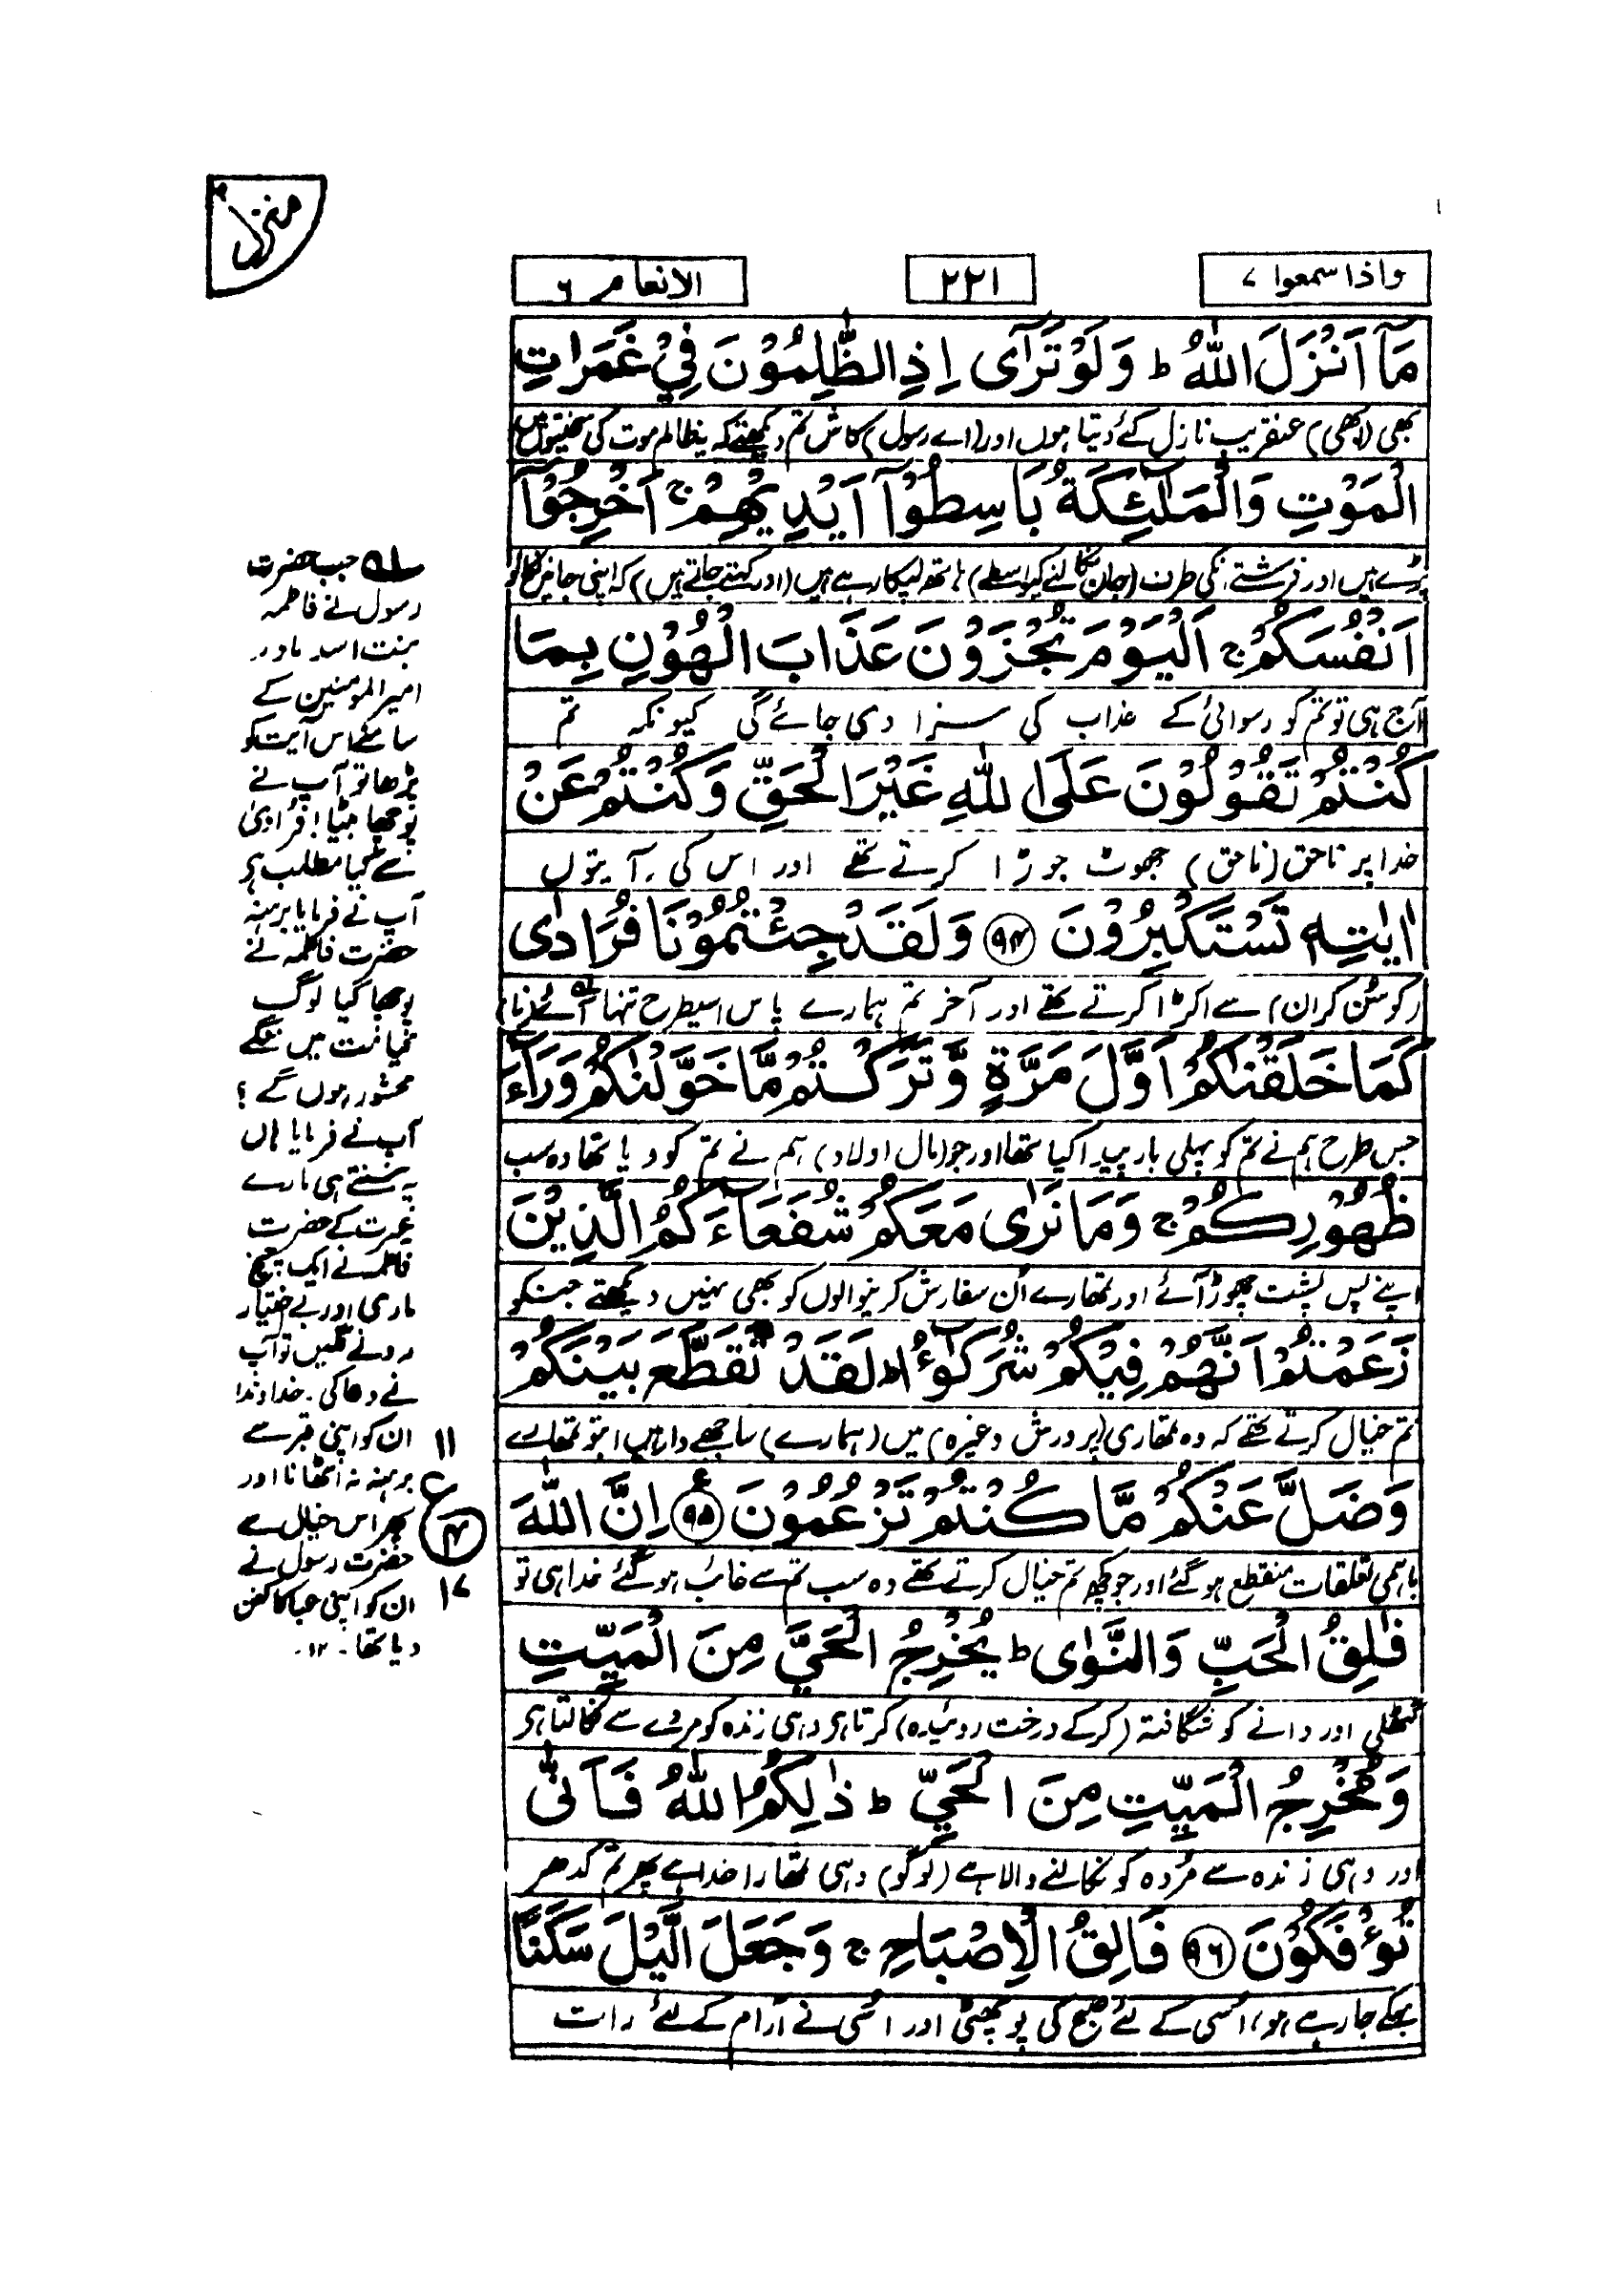 منزل ۲
واذا سمعوا ۷
۲۲۱
الانعام ۶
مَآ اَنْزَلَ اللّٰهُ ؕ وَلَوْ تَرٰٓی اِذِ الظّٰلِمُوْنَ فِیْ غَمَرٰتِ
بھی (ابھی) عنقریب نازل کئے دیتا ہوں اور (اے رسول) کاش تم دیکھتے کہ یہ ظالم موت کی سختیوں میں
الْمَوْتِ وَالْمَلٰٓئِكَةُ بَاسِطُوْٓا اَیْدِیْهِمْ ۚ اَخْرِجُوْٓا
پڑے ہیں اور فرشتے انکی طرف (جان نکالنے کیواسطے) ہاتھ لپکا رہے ہیں (اور کہتے جاتے ہیں) کہ اپنی جانیں نکالو
اَنْفُسَكُمْ ۚ اَلْیَوْمَ تُجْزَوْنَ عَذَابَ الْهُوْنِ بِمَا
آج ہی تو تم کو رسوائی کے عذاب کی سزا دی جائے گی کیونکہ تم
كُنْتُمْ تَقُوْلُوْنَ عَلَی اللّٰهِ غَیْرَ الْحَقِّ وَكُنْتُمْ عَنْ
خدا پر ناحق (ناحق) جھوٹ جوڑا کرتے تھے اور اس کی آیتوں
اٰیٰتِهٖ تَسْتَكْبِرُوْنَ ﴿۹۴﴾ وَلَقَدْ جِئْتُمُوْنَا فُرَادٰی
(کو سُن کر ان) سے اکڑا کرتے تھے اور آخر تم ہمارے پاس اسیطرح تنہا آئے (نا)
كَمَا خَلَقْنٰكُمْ اَوَّلَ مَرَّةٍ وَّتَرَكْتُمْ مَّا خَوَّلْنٰكُمْ وَرَآءَ
جس طرح ہم نے تم کو پہلی بار پیدا کیا تھا اور جو (مال اولاد) ہم نے تم کو دیا تھا وہ سب
ظُهُوْرِكُمْ ۚ وَمَا نَرٰی مَعَكُمْ شُفَعَآءَكُمُ الَّذِیْنَ
اپنے پس پشت چھوڑ آئے اور تمھارے اُن سفارش کرنیوالوں کو بھی نہیں دیکھتے جنکو
زَعَمْتُمْ اَنَّهُمْ فِیْكُمْ شُرَكٰٓؤُا ؕ لَقَدْ تَّقَطَّعَ بَیْنَكُمْ
تم خیال کرتے تھے کہ وہ تمھاری (پرورش وغیرہ) میں (ہمارے) ساجھے دار ہیں اب تو تمھارے
وَضَلَّ عَنْكُمْ مَّا كُنْتُمْ تَزْعُمُوْنَ ﴿۹۵﴾ اِنَّ اللّٰهَ
باہمی تعلقات منقطع ہو گئے اور جو کچھ تم خیال کرتے تھے وہ سب تم سے غائب ہو گئے خدا ہی تو
فٰلِقُ الْحَبِّ وَالنَّوٰی ؕ یُخْرِجُ الْحَیَّ مِنَ الْمَیِّتِ
گٹھلی اور دانے کو شگافتہ (کر کے درخت روئیدہ) کرتا ہے وہی زندہ کو مردے سے نکالتا ہے
وَمُخْرِجُ الْمَیِّتِ مِنَ الْحَیِّ ؕ ذٰلِكُمُ اللّٰهُ فَاَنّٰی
اور وہی زندہ سے مُردہ کو نکالنے والا ہے (لوگو) وہی تمھارا خدا ہے پھر تم کدھر
تُؤْفَكُوْنَ ﴿۹۶﴾ فَالِقُ الْاِصْبَاحِ ۚ وَجَعَلَ الَّیْلَ سَكَنًا
بہکے جا رہے ہو، اُسی کے لئے صبح کی پو پھٹی اور اُسی نے آرام کے لئے رات
۱۱
ع
۱۷
۱؎ جب حضرت
رسول نے فاطمہ
بنت اسد مادر
امیر المومنین کے
سامنے اس آیت کو
پڑھا تو آپ نے
پوچھا بیٹا! فرادیٰ
سے کیا مطلب ہے
آپ نے فرمایا برہنہ
حضرت فاطمہ نے
پوچھا کیا لوگ
قیامت میں ننگے
محشور ہوں گے ؟
آپ نے فرمایا ہاں
یہ سنتے ہی مارے
غیرت کے حضرت
فاطمہ نے ایک چیخ
ماری اور بے اختیار
رونے لگیں تو آپ
نے دعا کی۔ خداوندا
ان کو اپنی قبر سے
برہنہ نہ اٹھانا اور
پھر اس خیال سے
حضرت رسول نے
ان کو اپنی عبا کا کفن
دیا تھا۔ ۱۲۔